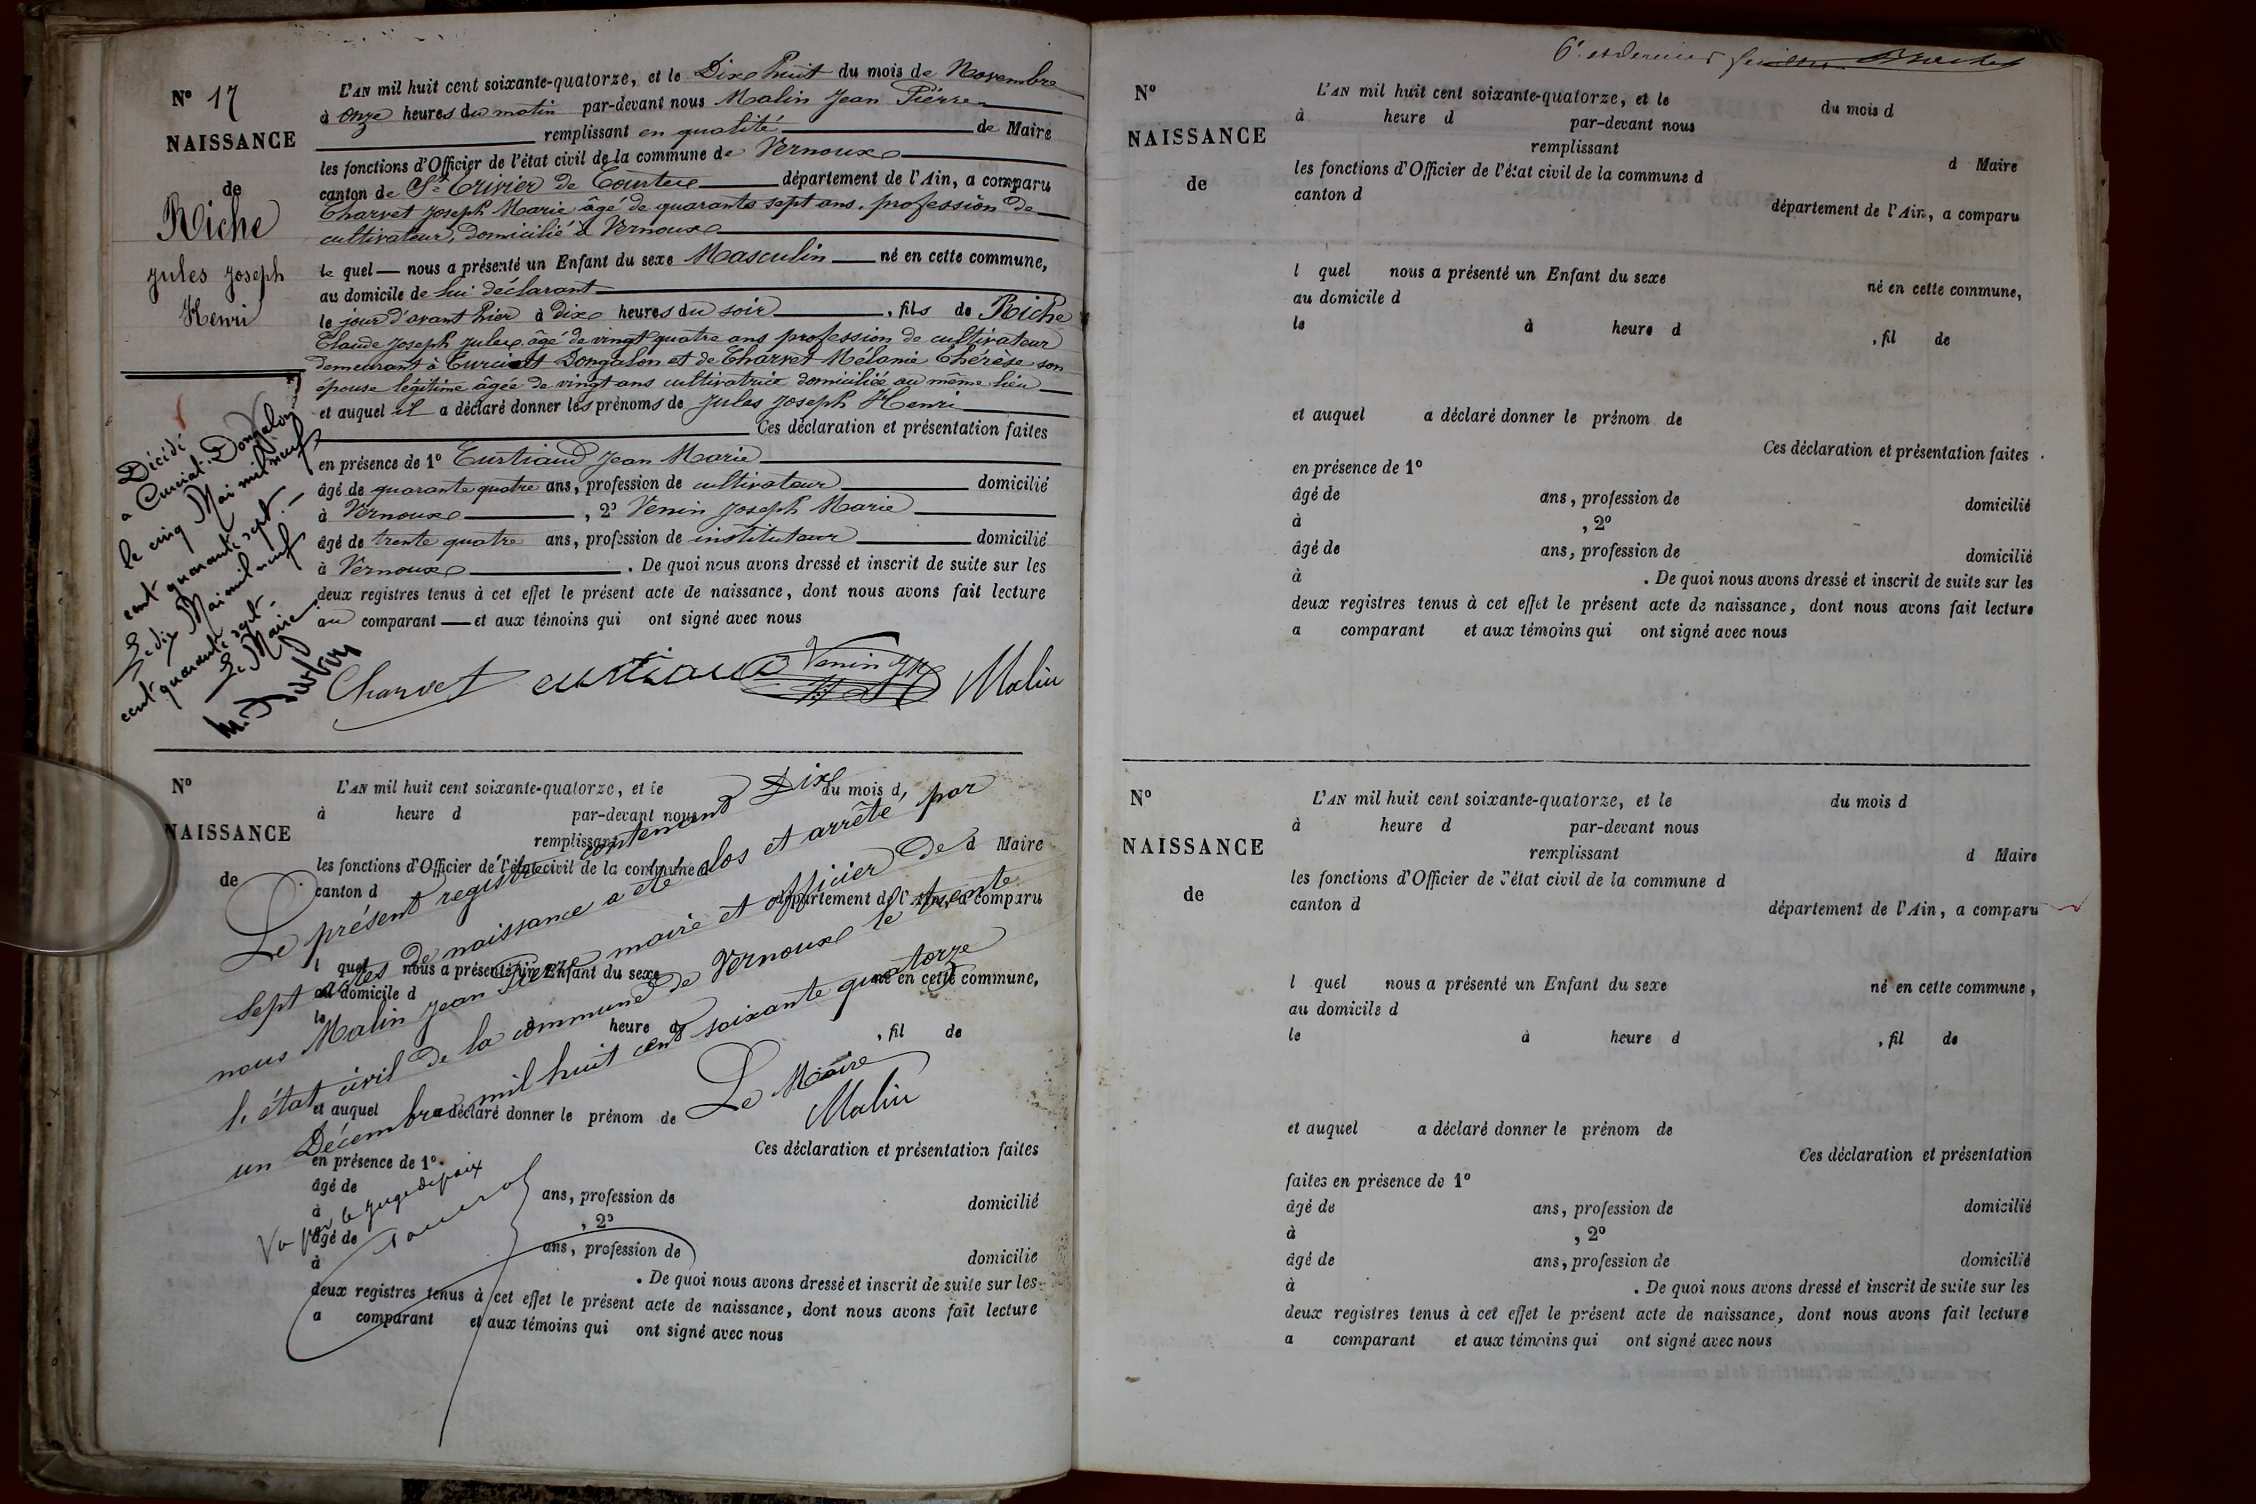 N° 17
NAISSANCE
de
Riche
Jules Joseph
Henri
L'AN mil huit cent soixante-quatorze, et le Dix huit du mois de Novembre
à Onze heures du matin par-devant nous Malin Jean Pierre
remplissant en qualité de Maire
les fonctions d'Officier de l'état civil de la commune de Vernoux
canton de St Trivier de Courtes département de l'Ain, a comparu
Charvet Joseph Marie âgé de quarante sept ans, profession de
cultivateur, domicilié à Vernoux
le quel nous a présenté un Enfant du sexe Masculin né en cette commune,
au domicile de lui déclarant
le jour d'avant hier à dix heures du soir, fils de Riche
Claude Joseph Jules, âgé de vingt quatre ans profession de cultivateur
demeurant à Curciat Dongalon et de Charvet Mélanie Thérèse son
épouse légitime âgée de vingt ans cultivatrice domiciliée au même lieu
et auquel il a déclaré donner les prénoms de Jules Joseph Henri
Ces déclaration et présentation faites
en présence de 1° Curtiaud Jean Marie
âgé de quarante quatre ans, profession de cultivateur domicilié
à Vernoux, 2° Venin Joseph Marie
âgé de trente quatre ans, profession de instituteur domicilié
à Vernoux. De quoi nous avons dressé et inscrit de suite sur les
deux registres tenus à cet effet le présent acte de naissance, dont nous avons fait lecture
au comparant et aux témoins qui ont signé avec nous
Charvet Curtiaud Venin Malin
Décédé
a Curciat-Dongalon
le cinq Mai mil neuf
cent quarante sept.
Le dix Mai mil neuf
cent quarante sept
Le Maire
N°
NAISSANCE
de
L'AN mil huit cent soixante-quatorze, et le du mois d
à heure d par-devant nous
remplissant d Maire
les fonctions d'Officier de l'état civil de la commune d
canton d département de l'Ain, a comparu
l quel nous a présenté un Enfant du sexe né en cette commune,
au domicile d
le à heure d , fil de
et auquel a déclaré donner le prénom de
Ces déclaration et présentation faites
en présence de 1°
âgé de ans, profession de domicilié
à , 2°
âgé de ans, profession de domicilié
à . De quoi nous avons dressé et inscrit de suite sur les
deux registres tenus à cet effet le présent acte de naissance, dont nous avons fait lecture
a comparant et aux témoins qui ont signé avec nous
Le présent registre contenant Dix
sept actes de naissance a été clos et arrêté par
nous Malin Jean Pierre maire et officier de
l'état civil de la commune de Vernoux le trente
un Décembre mil huit cent soixante quatorze
Le Maire
Malin
Vu par le Juge de paix
6e et dernier feuillet
N°
NAISSANCE
de
L'AN mil huit cent soixante-quatorze, et le du mois d
à heure d par-devant nous
remplissant d Maire
les fonctions d'Officier de l'état civil de la commune d
canton d département de l'Ain, a comparu
l quel nous a présenté un Enfant du sexe né en cette commune,
au domicile d
le à heure d , fil de
et auquel a déclaré donner le prénom de
Ces déclaration et présentation faites
en présence de 1°
âgé de ans, profession de domicilié
à , 2°
âgé de ans, profession de domicilié
à . De quoi nous avons dressé et inscrit de suite sur les
deux registres tenus à cet effet le présent acte de naissance, dont nous avons fait lecture
a comparant et aux témoins qui ont signé avec nous
N°
NAISSANCE
de
L'AN mil huit cent soixante-quatorze, et le du mois d
à heure d par-devant nous
remplissant d Maire
les fonctions d'Officier de l'état civil de la commune d
canton d département de l'Ain, a comparu
l quel nous a présenté un Enfant du sexe né en cette commune,
au domicile d
le à heure d , fil de
et auquel a déclaré donner le prénom de
Ces déclaration et présentation
faites en présence de 1°
âgé de ans, profession de domicilié
à , 2°
âgé de ans, profession de domicilié
à . De quoi nous avons dressé et inscrit de suite sur les
deux registres tenus à cet effet le présent acte de naissance, dont nous avons fait lecture
a comparant et aux témoins qui ont signé avec nous